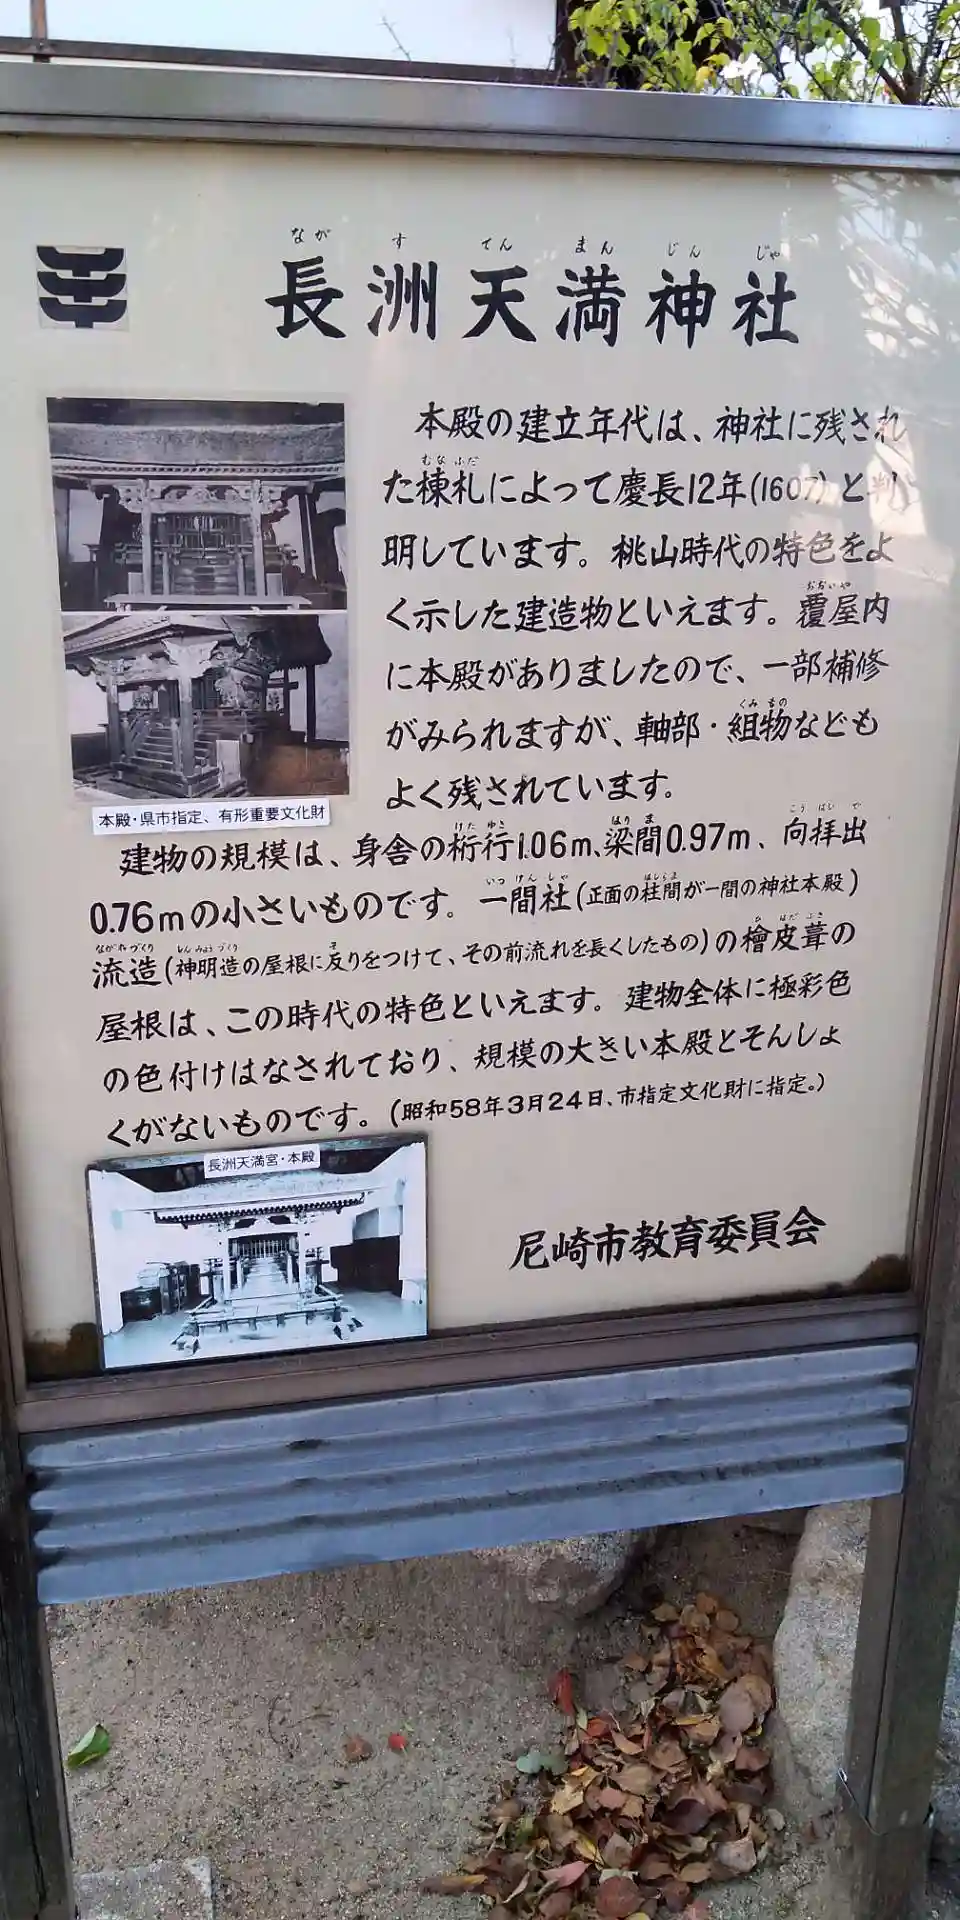 長洲天満神社
なが す てん まん じん じゃ
本殿の建立年代は、神社に残され
た棟札によって慶長12年(1607)と判
むな ふだ
明しています。桃山時代の特色をよ
く示した建造物といえます。覆屋内
おおいや
に本殿がありましたので、一部補修
がみられますが、軸部・組物なども
くみ もの
よく残されています。
本殿・県市指定、有形重要文化財
建物の規模は、身舎の桁行1.06m、梁間0.97m、向拝出
けた ゆき はり ま こう はい で
0.76mの小さいものです。一間社(正面の柱間が一間の神社本殿)
いっ けん しゃ はしらま
流造(神明造の屋根に反りをつけて、その前流れを長くしたもの)の檜皮葺の
ながれづくり しんみょうづくり そ ひ はだ ぶき
屋根は、この時代の特色といえます。建物全体に極彩色
の色付けはなされており、規模の大きい本殿とそんしょ
くがないものです。(昭和58年3月24日、市指定文化財に指定。)
長洲天満宮・本殿
尼崎市教育委員会